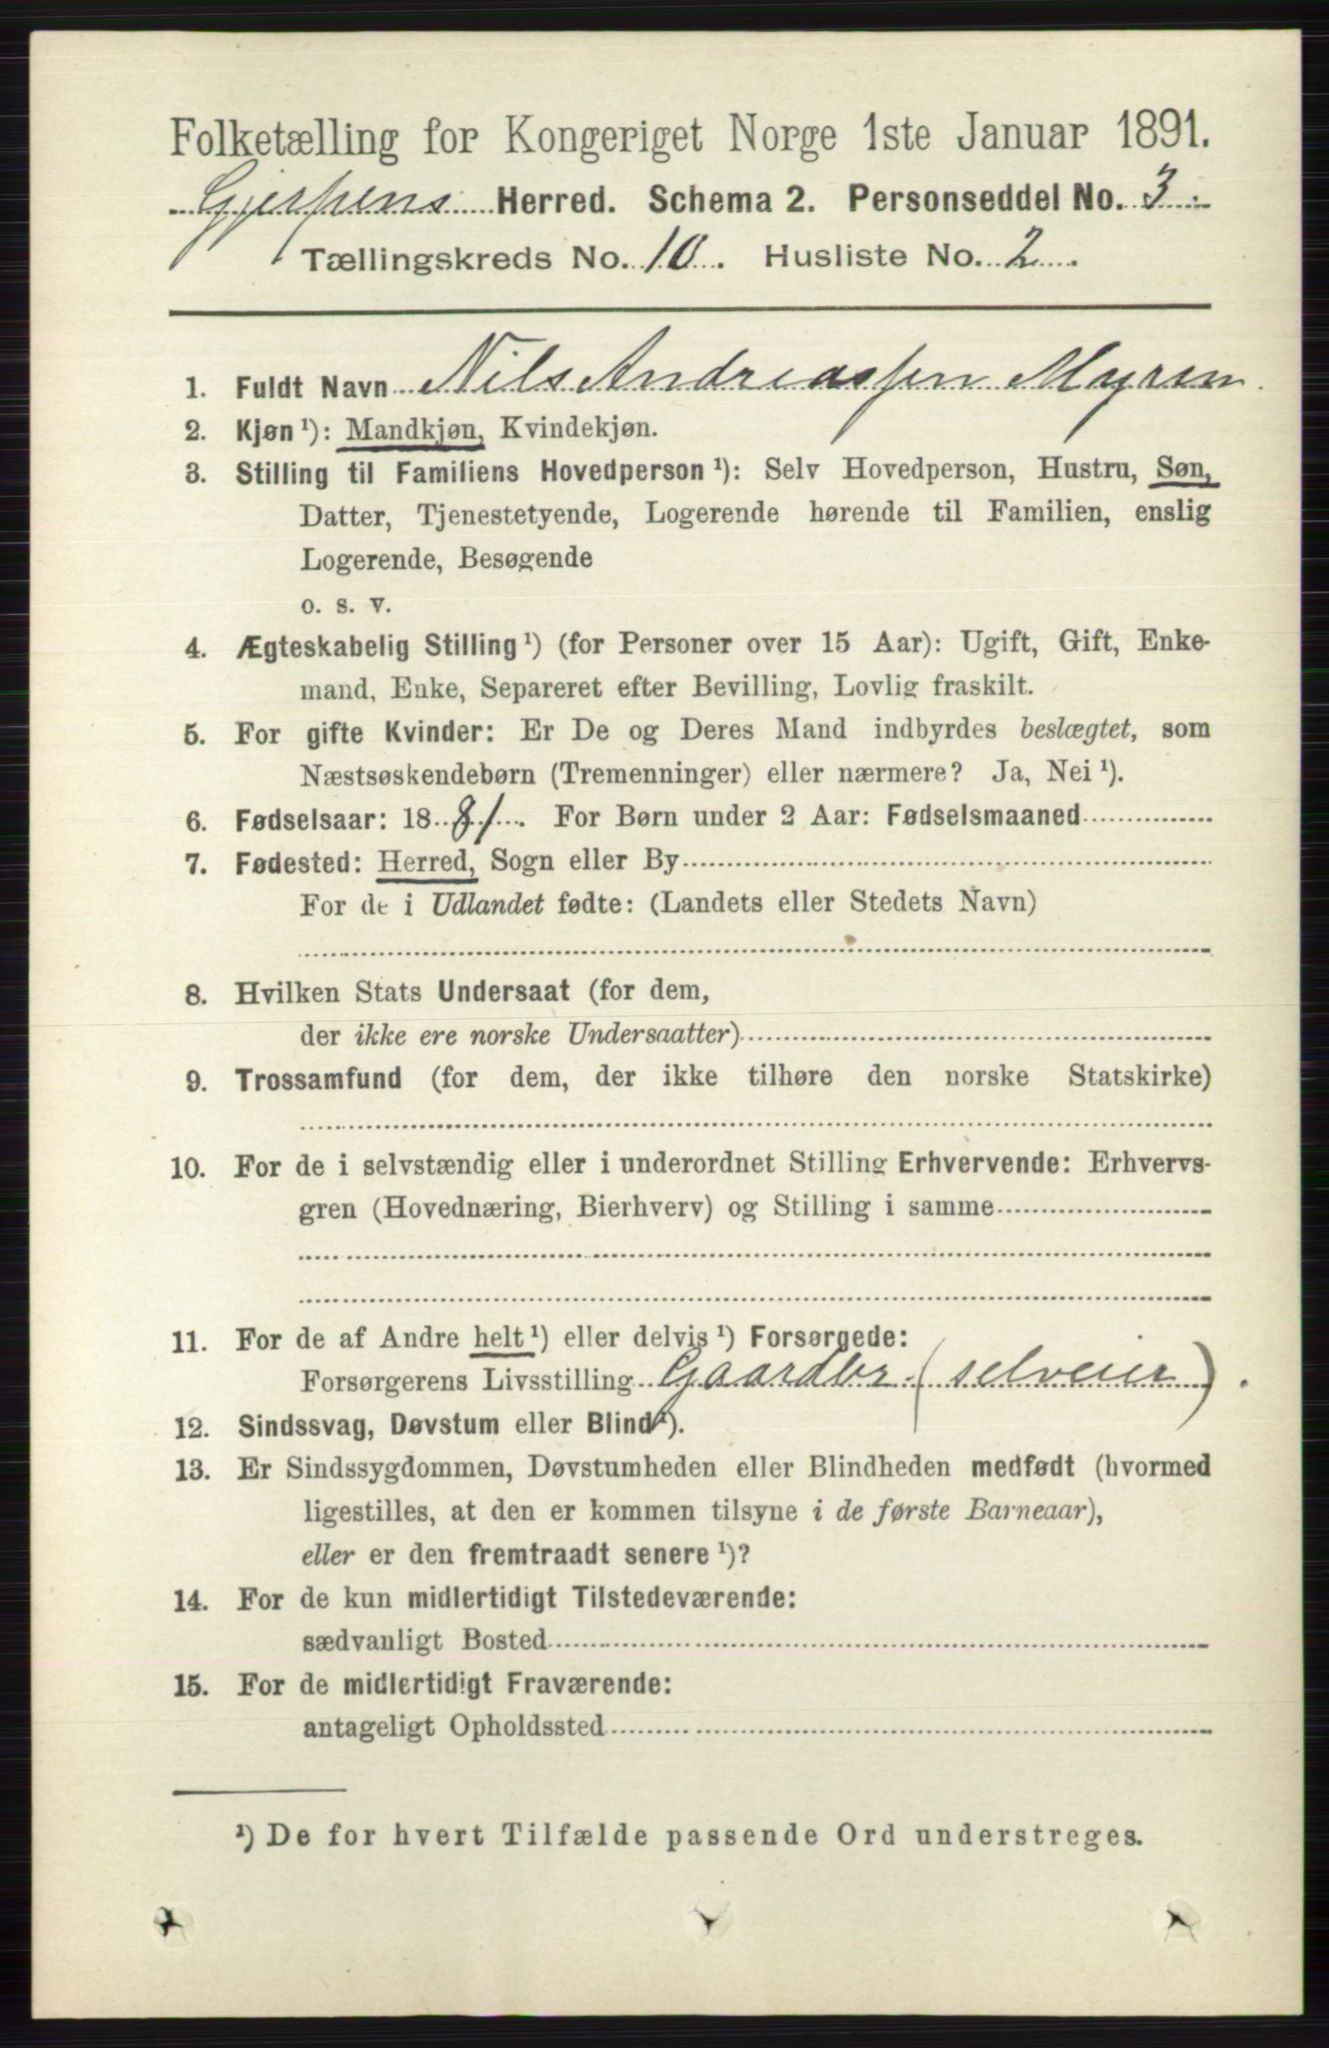 Folketælling for Kongeriget Norge 1ste Januar 1891.
Gjerpens Herred. Schema 2. Personseddel No. 3.
Tællingskreds No. 10. Husliste No. 2.
1. Fuldt Navn Nils Andreassen Myren.
2. Kjøn ¹): Mandkjøn, Kvindekjøn.
3. Stilling til Familiens Hovedperson ¹): Selv Hovedperson, Hustru, Søn,
Datter, Tjenestetyende, Logerende hørende til Familien, enslig
Logerende, Besøgende
o. s. v.
4. Ægteskabelig Stilling ¹) (for Personer over 15 Aar): Ugift, Gift, Enke-
mand, Enke, Separeret efter Bevilling, Lovlig fraskilt.
5. For gifte Kvinder: Er De og Deres Mand indbyrdes beslægtet, som
Næstsøskendebørn (Tremenninger) eller nærmere? Ja, Nei ¹).
6. Fødselsaar: 1881. For Børn under 2 Aar: Fødselsmaaned
7. Fødested: Herred, Sogn eller By
For de i Udlandet fødte: (Landets eller Stedets Navn)
8. Hvilken Stats Undersaat (for dem,
der ikke ere norske Undersaatter)
9. Trossamfund (for dem, der ikke tilhøre den norske Statskirke)
10. For de i selvstændig eller i underordnet Stilling Erhvervende: Erhvervs-
gren (Hovednæring, Bierhverv) og Stilling i samme
11. For de af Andre helt ¹) eller delvis ¹) Forsørgede:
Forsørgerens Livsstilling Gaardbr. (selveier).
12. Sindssvag, Døvstum eller Blind ¹).
13. Er Sindssygdommen, Døvstumheden eller Blindheden medfødt (hvormed
ligestilles, at den er kommen tilsyne i de første Barneaar),
eller er den fremtraadt senere ¹)?
14. For de kun midlertidigt Tilstedeværende:
sædvanligt Bosted
15. For de midlertidigt Fraværende:
antageligt Opholdssted
¹) De for hvert Tilfælde passende Ord understreges.